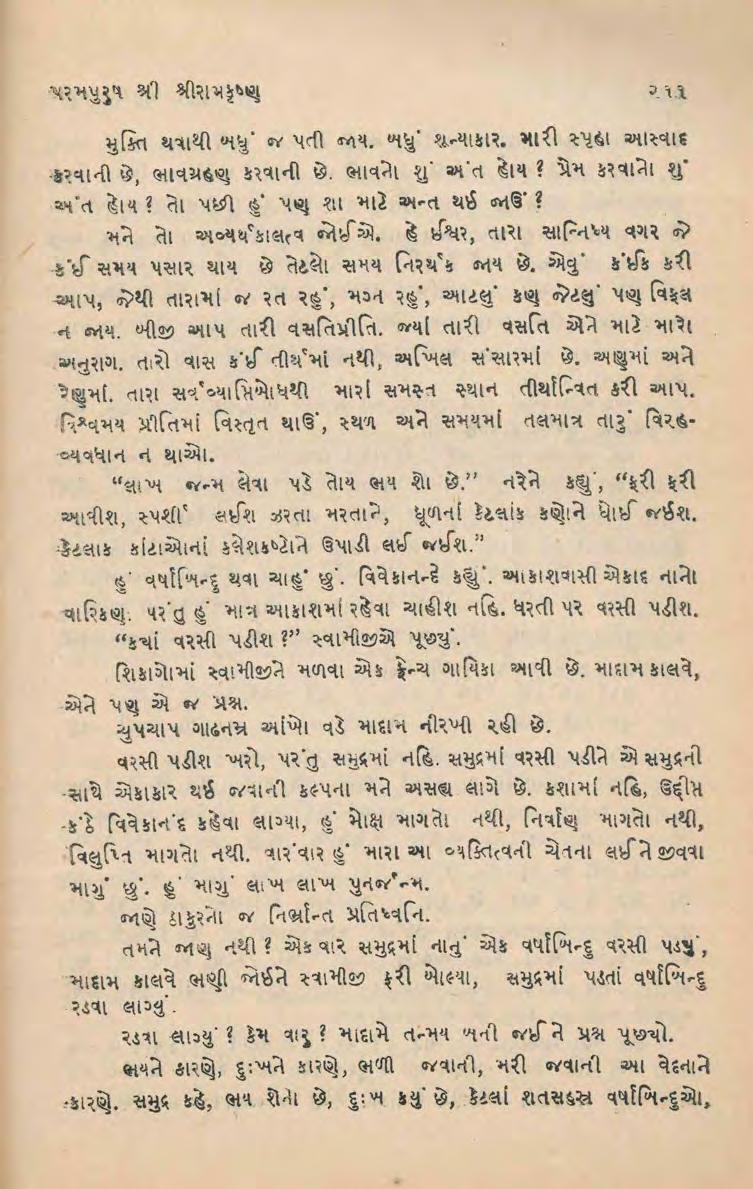 પરમપુરુષ શ્રી શ્રીરામકૃષ્ણ ૨૧૧
મુક્તિ થવાથી બધું જ પતી જાય. બધું શૂન્યાકાર. મારી સ્પૃહા આસ્વાદ
કરવાની છે, ભાવગ્રહણ કરવાની છે. ભાવનો શું અંત હોય ? પ્રેમ કરવાનો શું
અંત હોય ? તો પછી હું પણ શા માટે અન્ત થઈ જાઉં ?
મને તો અવ્યર્થકાલત્વ જોઈએ. હે ઈશ્વર, તારા સાન્નિધ્ય વગર જે
કંઈ સમય પસાર થાય છે તેટલો સમય નિરર્થક જાય છે. એવું કંઈક કરી
આપ, જેથી તારામાં જ રત રહું, મગ્ન રહું, આટલું કણ જેટલું પણ વિફલ
ન જાય. બીજી આપ તારી વસતિપ્રીતિ. જ્યાં તારી વસતિ એને માટે મારો
અનુરાગ. તારો વાસ કંઈ તીર્થમાં નથી, અખિલ સંસારમાં છે. અણુમાં અને
રેણુમાં. તારા સર્વવ્યાપ્તિબોધથી મારાં સમસ્ત સ્થાન તીર્થાન્વિત કરી આપ.
વિશ્વમય પ્રીતિમાં વિસ્તૃત થાઉં, સ્થળ અને સમયમાં તલમાત્ર તારું વિરહ-
વ્યવધાન ન થાઓ.
“લાખ જન્મ લેવા પડે તોય ભય શો છે.” નરેને કહ્યું, “ફરી ફરી
આવીશ, સ્પર્શી લઈશ ઝરતા મરતાને, ધૂળનાં કેટલાંક કણોને ધોઈ જઈશ.
કેટલાક કાંટાઓનાં કલેશકષ્ટોને ઉપાડી લઈ જઈશ.”
હું વર્ષાબિન્દુ થવા ચાહું છું. વિવેકાનન્દે કહ્યું. આકાશવાસી એકાદ નાનો
વારિકણ. પરંતુ હું માત્ર આકાશમાં રહેવા ચાહીશ નહિ. ધરતી પર વરસી પડીશ.
“ક્યાં વરસી પડીશ ?” સ્વામીજીએ પૂછ્યું.
શિકાગોમાં સ્વામીજીને મળવા એક ફ્રેન્ચ ગાયિકા આવી છે. માદામ કાલવે,
એને પણ એ જ પ્રશ્ન.
ચુપચાપ ગાઢનમ્ર આંખો વડે માદામ નીરખી રહી છે.
વરસી પડીશ ખરો, પરંતુ સમુદ્રમાં નહિ. સમુદ્રમાં વરસી પડીને એ સમુદ્રની
સાથે એકાકાર થઈ જવાની કલ્પના મને અસહ્ય લાગે છે. કશામાં નહિ, ઉદ્દીપ્ત
કંઠે વિવેકાનંદ કહેવા લાગ્યા, હું મોક્ષ માગતો નથી, નિર્વાણ માગતો નથી,
વિલુપ્તિ માગતો નથી. વારંવાર હું મારા આ વ્યક્તિત્વની ચેતના લઈને જીવવા
માગું છું. હું માગું લાખ લાખ પુનર્જન્મ.
જાણે ઠાકુરનો જ નિર્ભ્રાન્ત પ્રતિધ્વનિ.
તમને જાણ નથી ? એક વાર સમુદ્રમાં નાનું એક વર્ષાબિન્દુ વરસી પડ્યું,
માદામ કાલવે ભણી જોઈને સ્વામીજી ફરી બોલ્યા, સમુદ્રમાં પડતાં વર્ષાબિન્દુ
રડવા લાગ્યું.
રડવા લાગ્યું ? કેમ વારુ ? માદામે તન્મય બની જઈને પ્રશ્ન પૂછ્યો.
ભયને કારણે, દુઃખને કારણે, ભળી જવાની, મરી જવાની આ વેદનાને
કારણે. સમુદ્ર કહે, ભય શેનો છે, દુઃખ કયું છે, કેટલાં શતસહસ્ર વર્ષાબિન્દુઓ,